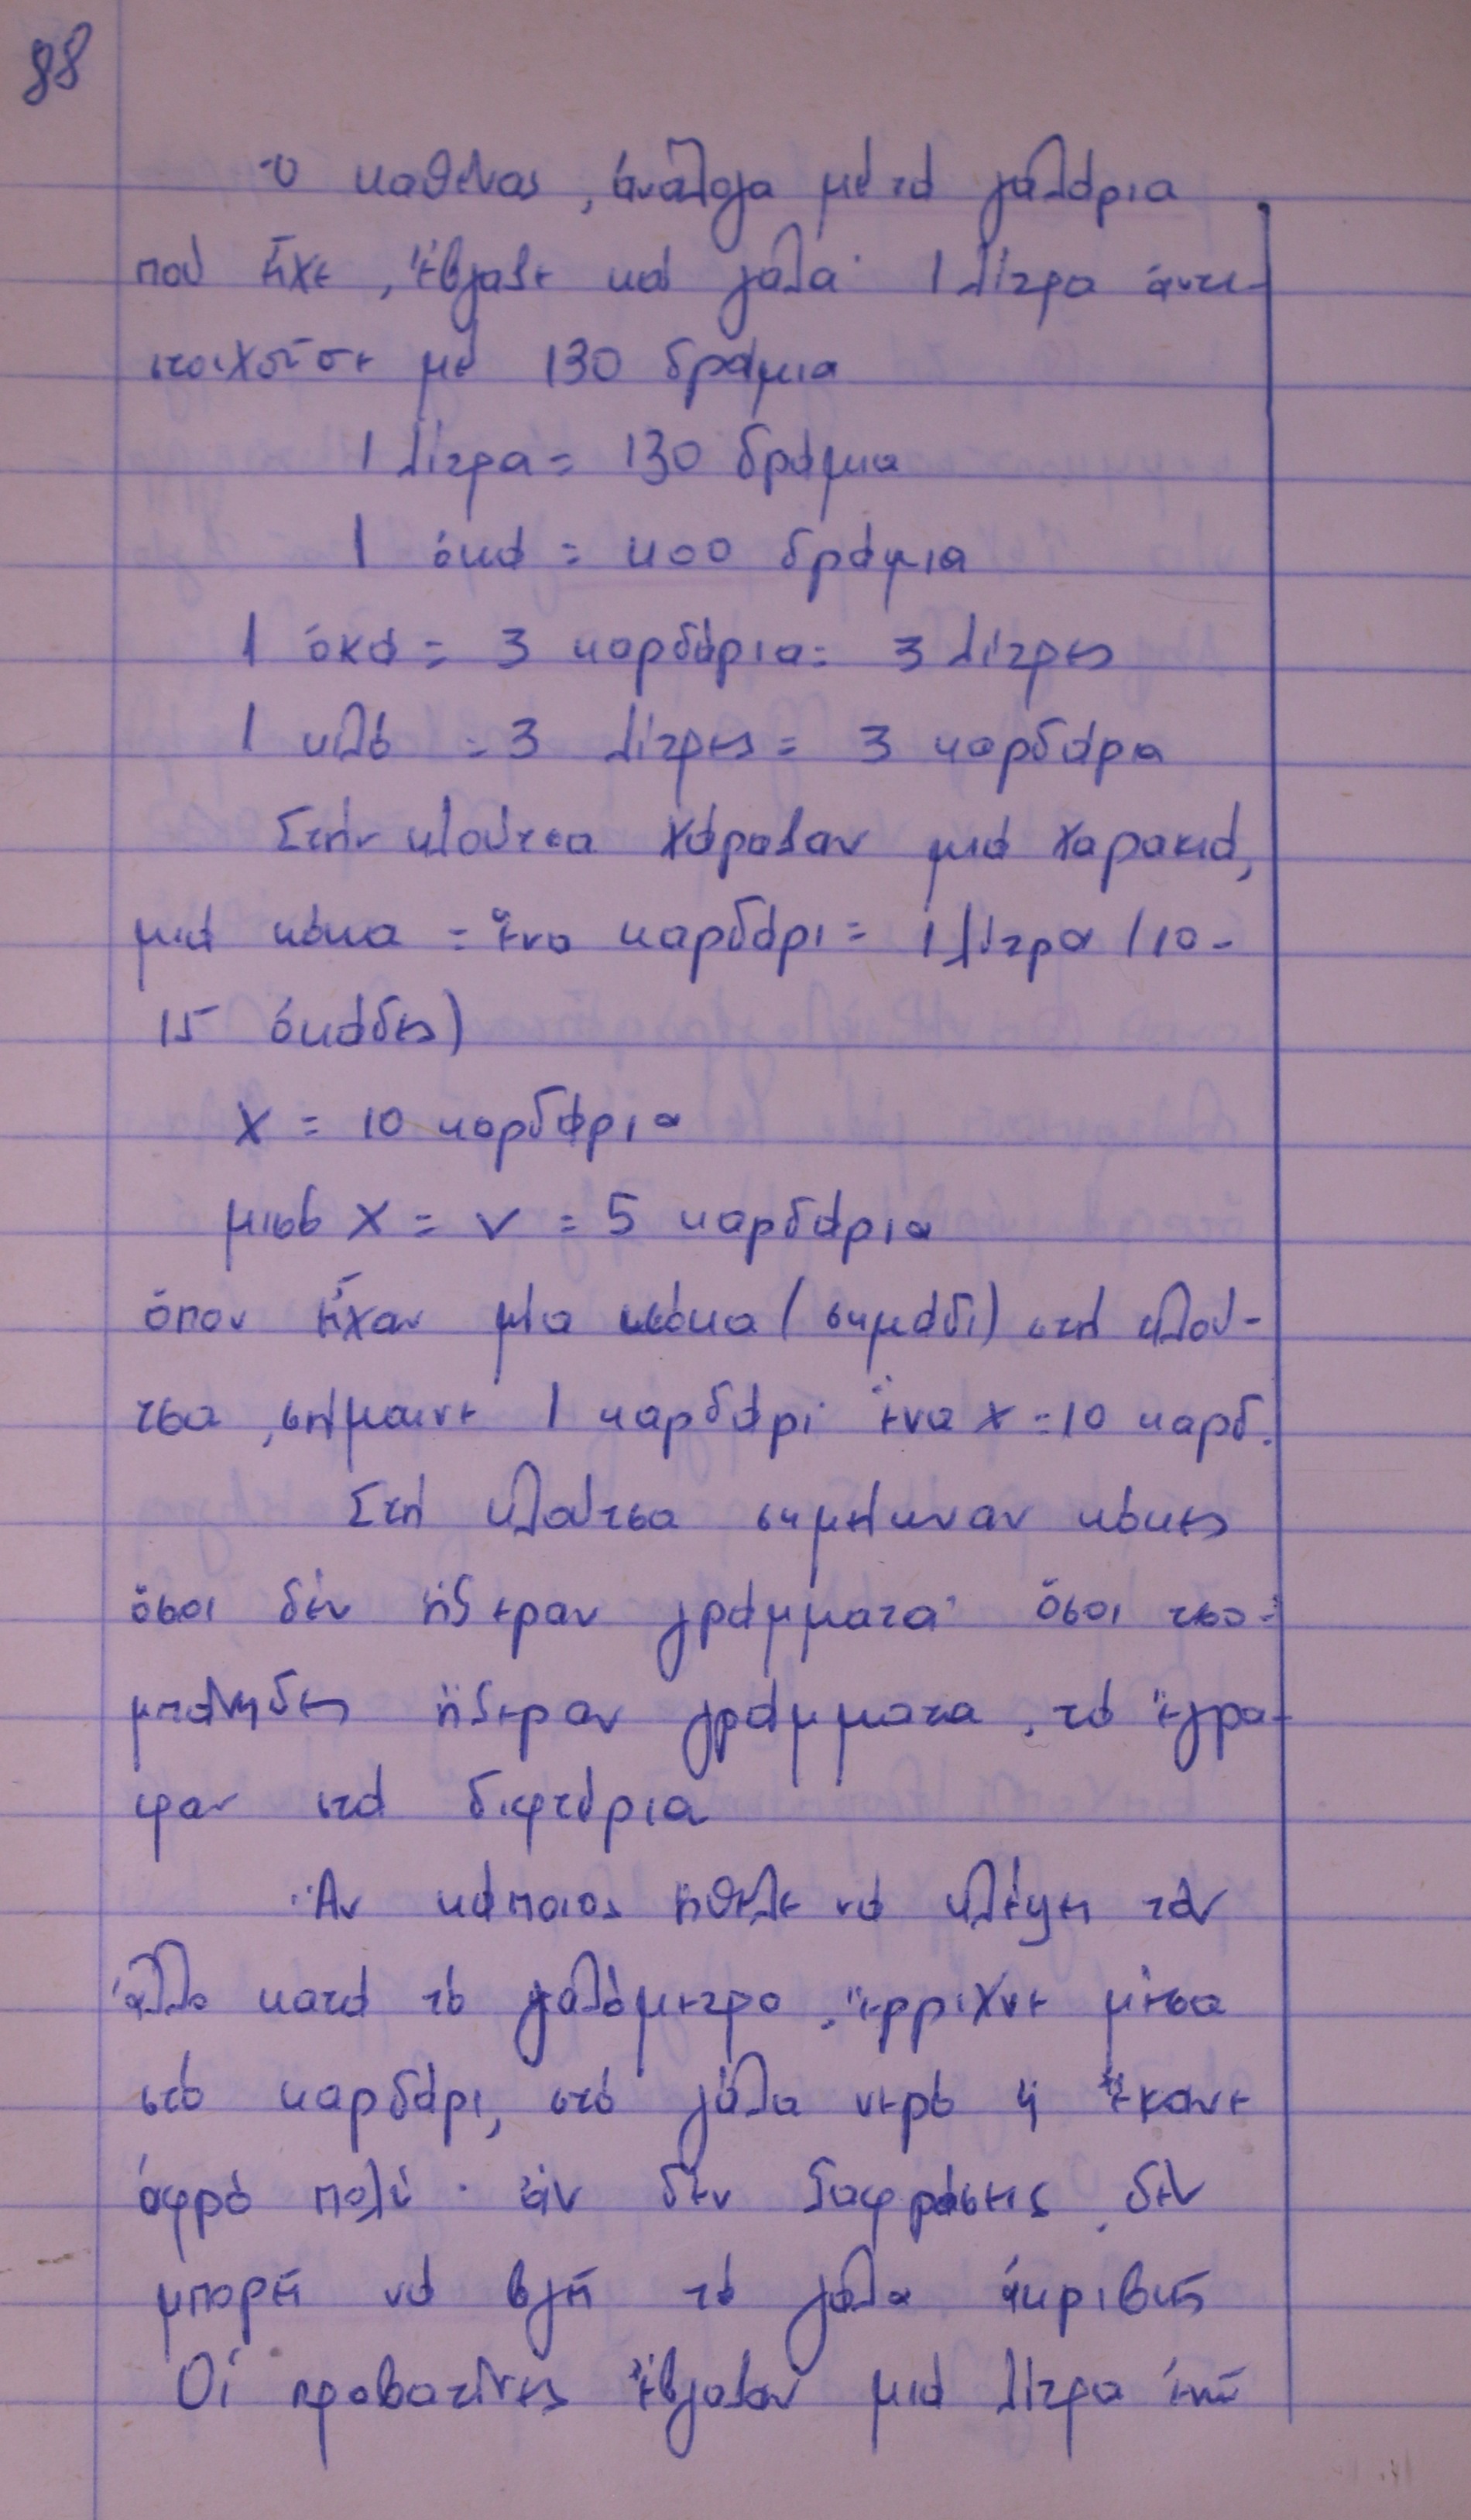 88
Ὁ καθένας, ἀνάλογα μέ τά γαλάρια
πού εἶχε, ἔβγαζε καί γάλα· 1 λίτρα ἀντι-
στοιχοῦσε μέ 130 δράμια
1 λίτρα = 130 δράμια
1 ὀκά = 400 δράμια
1 ὀκά = 3 καρδάρια = 3 λίτρες
1 κιλό = 3 λίτρες = 3 καρδάρια
Στήν κλούτσα χάραζαν μιά χαρακιά,
μιά κόκα = ἕνα καρδάρι = 1 λίτρα (10-
15 ὀκάδες)
Χ = 10 καρδάρια
μισό Χ = ν = 5 καρδάρια
ὅπου εἶχαν μία κόκα (σημάδι) στή κλού-
τσα, σήμαινε 1 καρδάρι· ἕνα χ = 10 καρδ.
Στή κλούτσα σημείωναν κόκες
ὅσοι δέν ἤξεραν γράμματα· ὅσοι τσο-
μπάνηδες ἤξεραν γράμματα, τό ἔγρα-
φαν στά διφτέρια
Ἄν κάποιος ἤθελε νά κλέψει τόν
ἄλλο κατά τό γαλόμετρο, ἔρριχνε μέσα
στό καρδάρι, στό γάλα νερό ἤ ἔκανε
ἀφρό πολύ· ἄν δέν ξαφρίσεις, δέν
μπορεῖ νά βγεῖ τό γάλα ἀκριβῶς
Οἱ προβατίνες ἔβγαζαν μιά λίτρα ἐπί